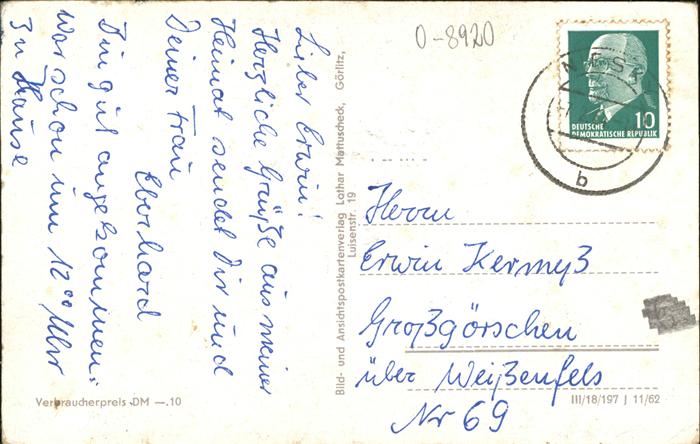 Lieber Erwin!
Herzliche Grüße aus meiner
Heimat sendet Dir und
Deiner Frau
Eberhard
Bin gut angekommen.
War schon um 12⁰⁰ Uhr
zu Hause
Bild- und Ansichtspostkartenverlag Lothar Mattuscheck, Görlitz,
Luisenstr. 19
0-8920
NIESK
b
10
DEUTSCHE
DEMOKRATISCHE REPUBLIK
Herrn
Erwin Kermeß
Großgörschen
über Weißenfels
Nr 69
Verbraucherpreis DM —.10
III/18/197 J 11/62